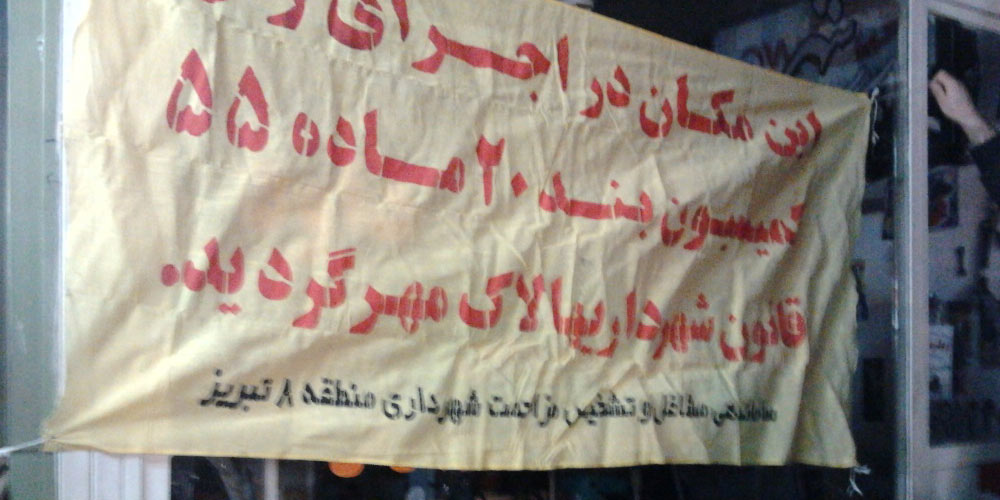 این مکان در اجرای
کمیسیون بند ۲۰ ماده ۵۵
قانون شهرداریها لاک مهر گردید.
ساماندهی مشاغل و تشخیص مزاحمت شهرداری منطقه ۸ تبریز